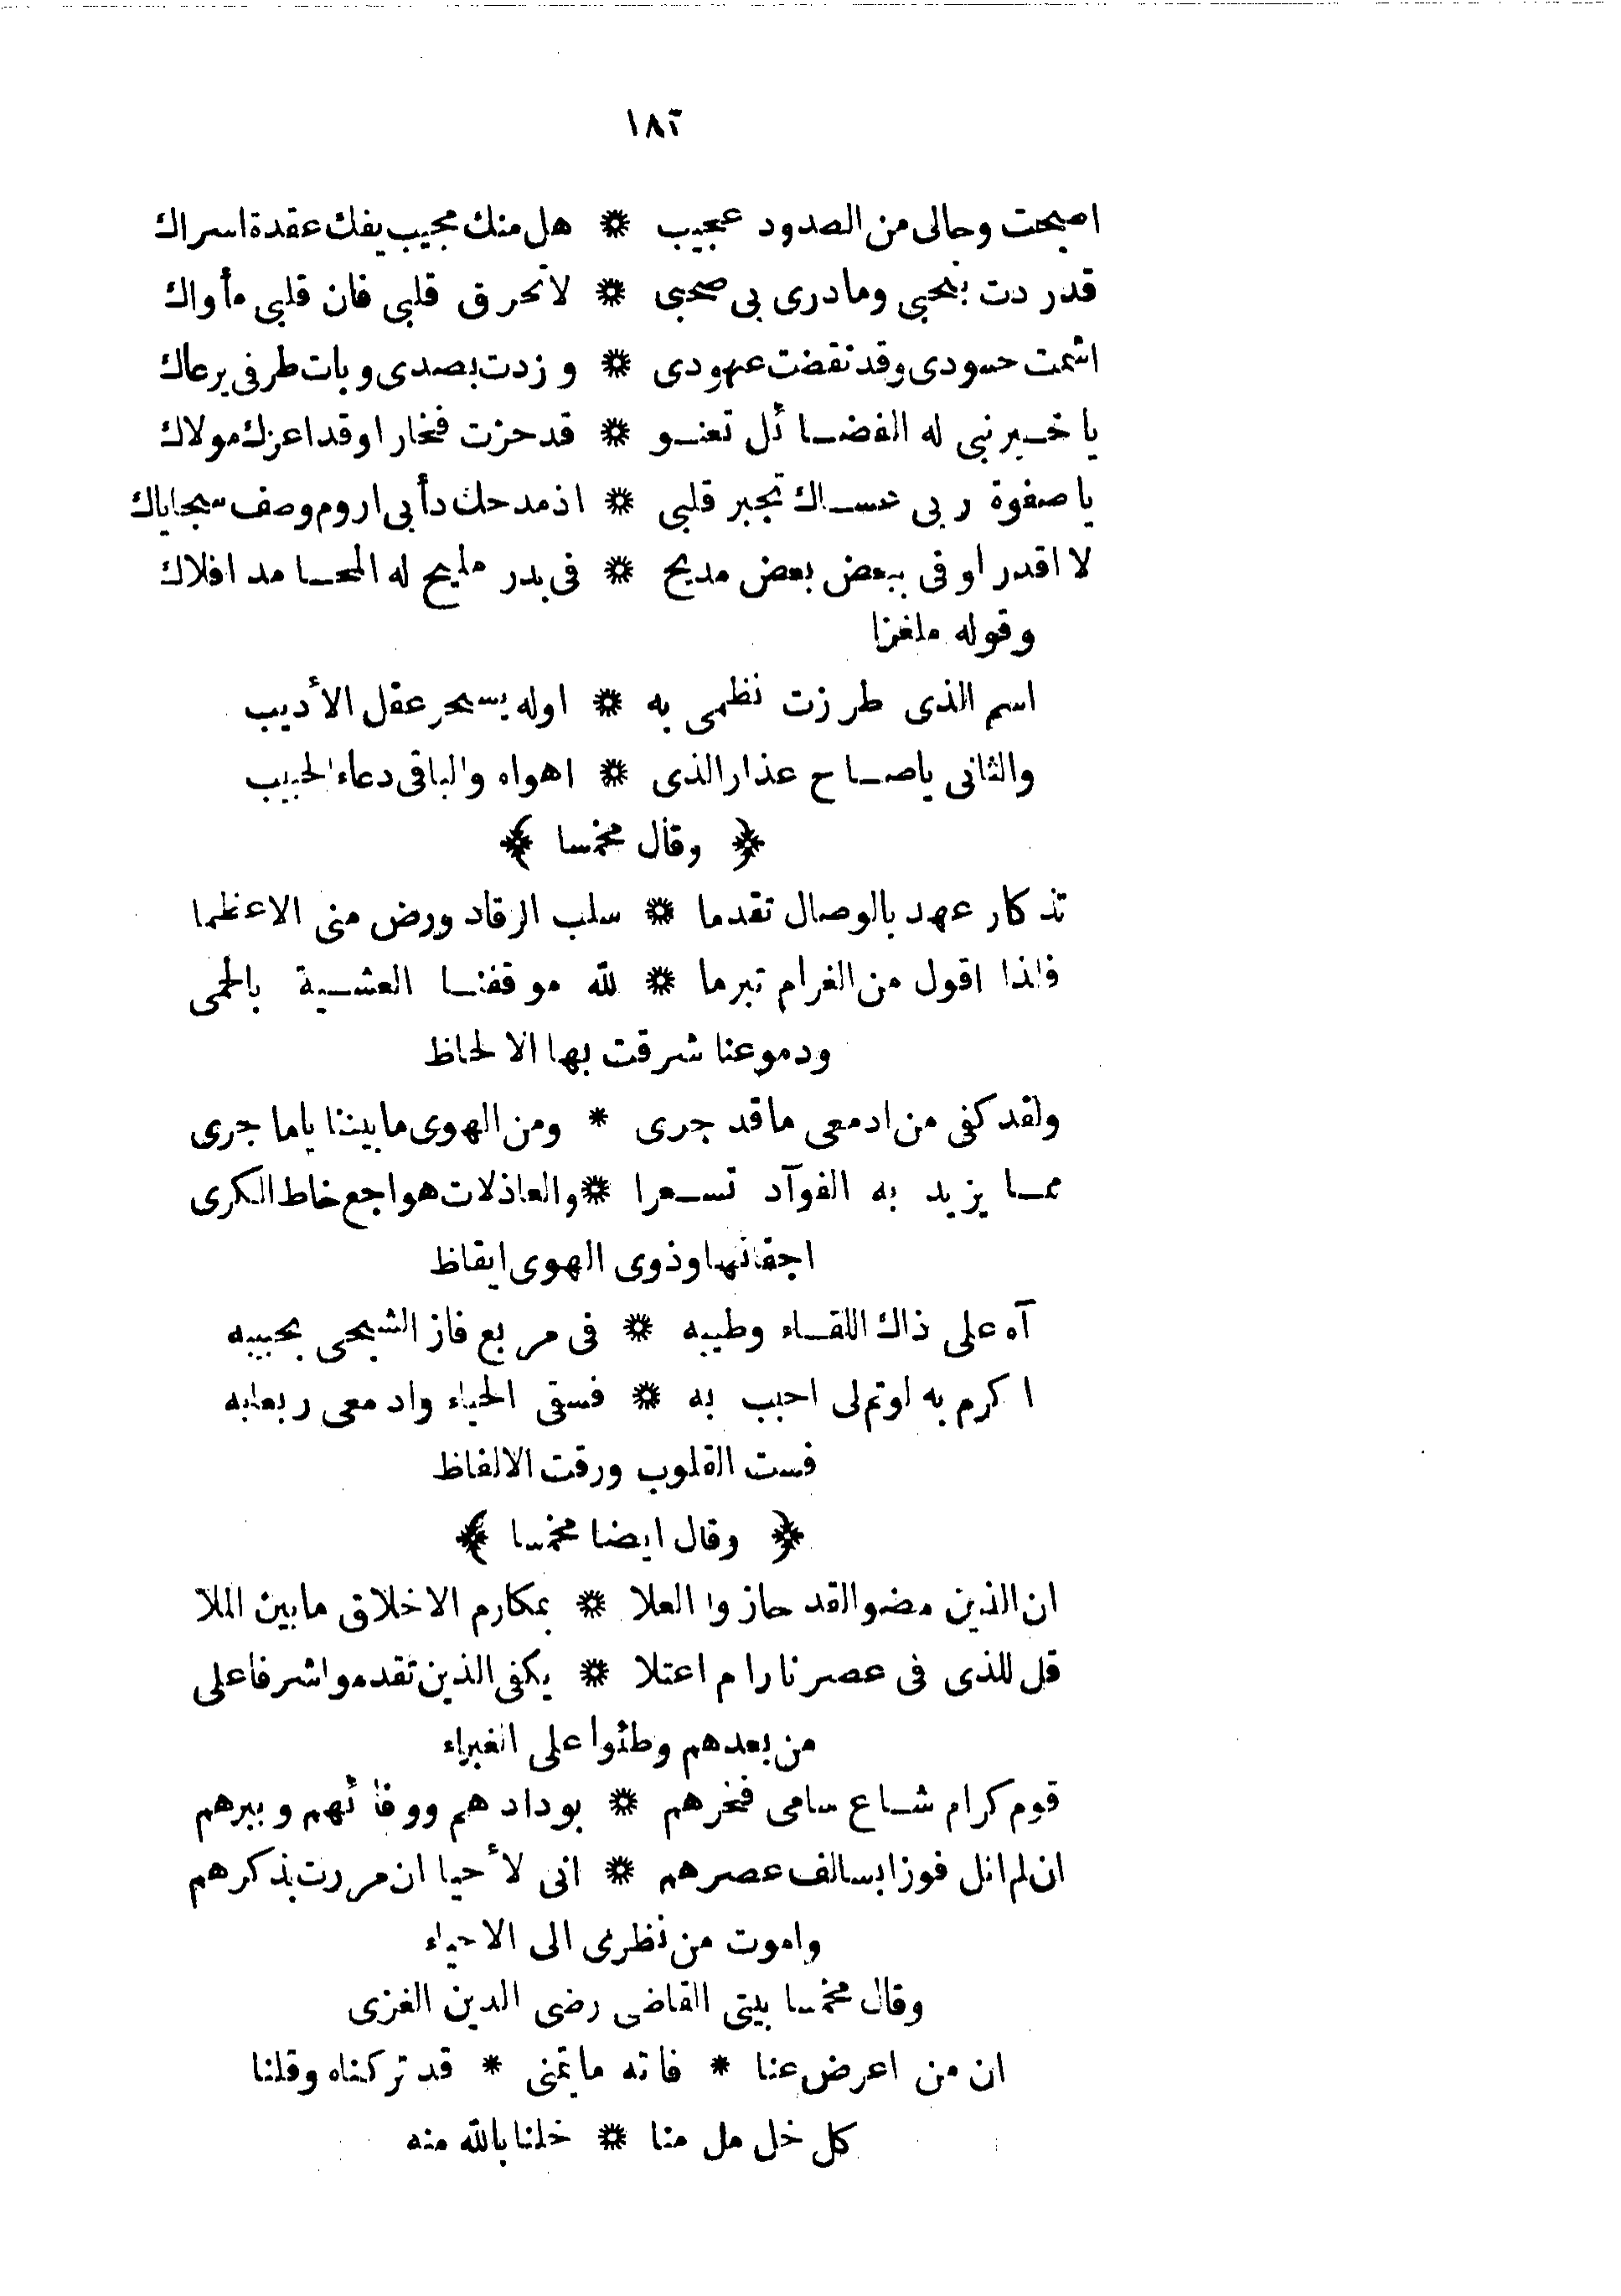 ١٨٦
اصبحت وحالى من الصدود عجيب * هل منك مجيب يفك عقدة اسراك
قدر دت بنحبى وما درى بى صحبى * لا تحرق قلبى فان قلبى مأواك
اشمت حسودى وقد نقضت عهودى * وزدت بصدى وبات طرفى يرعاك
يا خير نبى له الفضائل تعنو * قد حزت فخارا وقد اعزك مولاك
يا صفوة ربى عساك تجبر قلبى * اذ مدحك دأبى اروم وصف سجاياك
لا اقدر اوفى ببعض بعض مديح * فى بدر مليح له المحامد افلاك
وقوله ملغزا
اسم الذى طرزت نظمى به * اوله يسحر عقل الأديب
والثانى ياصاح عذار الذى * اهواه والباقى دعاء الحبيب
﴿ وقال مخمسا ﴾
تذكار عهد بالوصال تقدما * سلب الرقاد ورض منى الاعظما
فلذا اقول من الغرام تبرما * لله موقفنا العشية بالحمى
ودموعنا شرقت بها الالحاظ
ولقد كفى من ادمعى ما قد جرى * ومن الهوى ما بيننا ياما جرى
مما يزيد به الفوآد تسعرا * والعاذلات هواجع خاط الكرى
اجفانها وذوى الهوى ايقاظ
آه على ذاك اللقاء وطيبه * فى مربع فاز الشجى بحبيبه
اكرم به لوتم لى احبب به * فسقى الحياء وادمعى ربعا به
قست القلوب ورقت الالفاظ
﴿ وقال ايضا مخمسا ﴾
ان الذين مضوا لقد حازوا العلا * بمكارم الاخلاق ما بين الملا
قل للذى فى عصرنا رام اعتلا * يكفى الذين تقدموا شرفا على
من بعدهم وطئوا على الغبراء
قوم كرام شاع سامى فخرهم * بودادهم ووفائهم وببرهم
ان لم انل فوزا بسالف عصرهم * انى لأحيا ان مررت بذكرهم
واموت من نظرى الى الاحياء
وقال مخمسا بيتى القاضى رضى الدين الغزى
ان من اعرض عنا * فاته ما يتمنى * قد تركناه وقلنا
كل خل مل منا * خلنا بالله منه